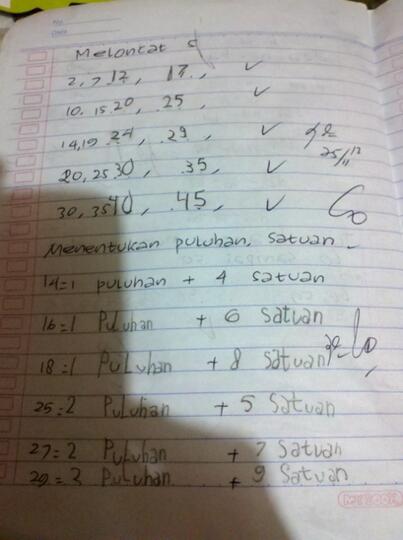 No.
Date
Meloncat 5
2, 7 12, 17, ✓
10. 15 20, 25, ✓
14, 19 24, 29, ✓
25/11 12
20, 25 30, 35, ✓
30, 35 40, 45, ✓
Menentukan puluhan, satuan
14=1 puluhan + 4 satuan
16=1 Puluhan + 6 Satuan
18=1 PuLuhan + 8 Satuan
25=2 PuLuhan + 5 Satuan
27=2 PuLuhan + 7 Satuan
29=2 PuLuhan + 9 Satuan